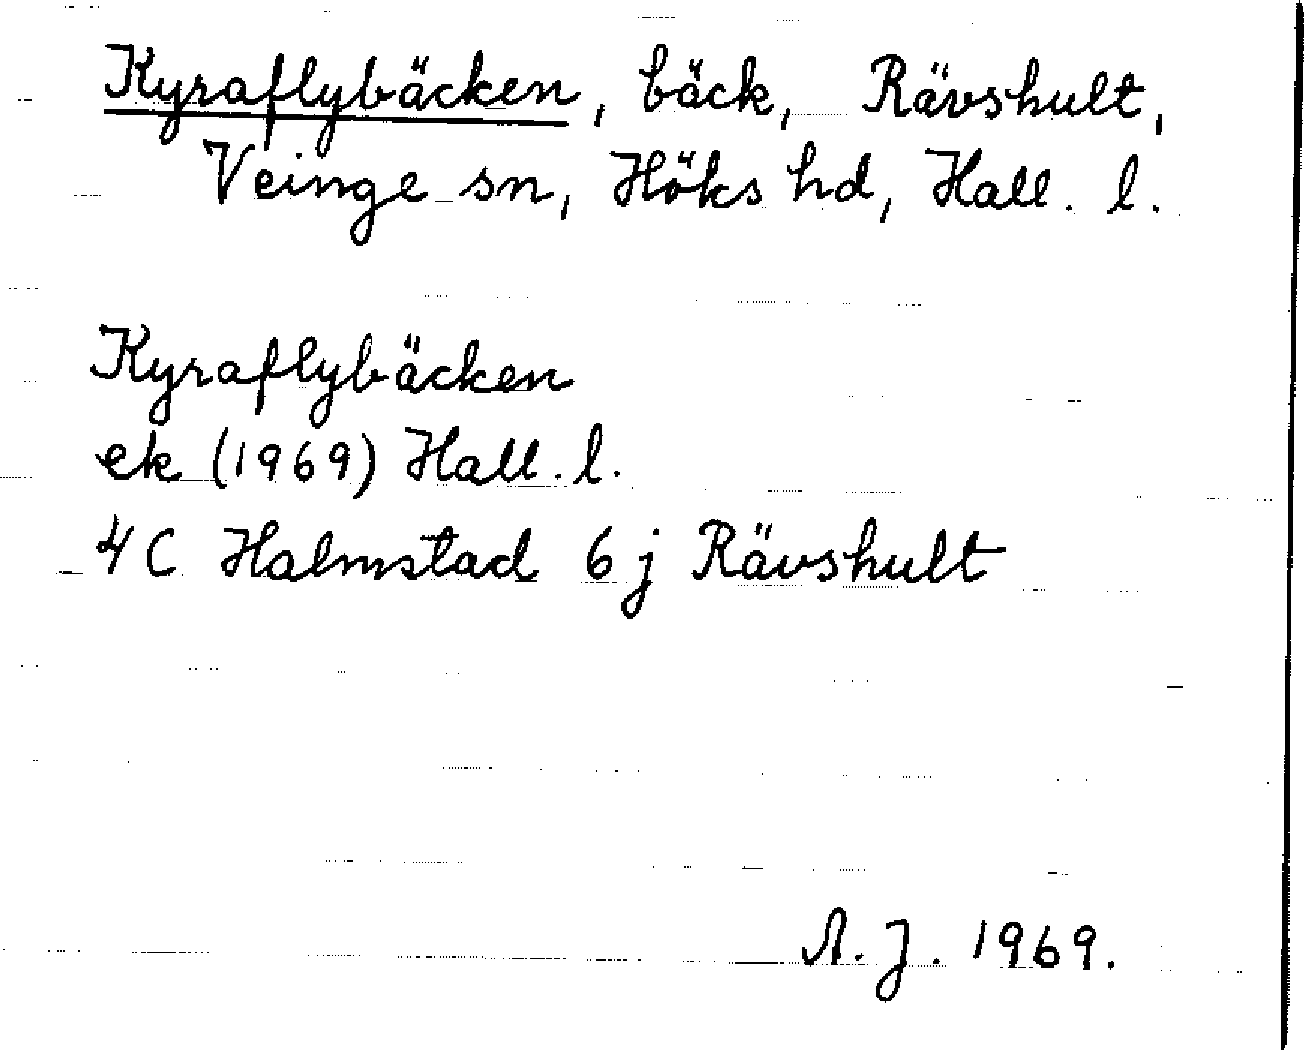 Kyraflybäcken, bäck, Rävshult,
Veinge sn, Höks hd, Hall. l.
Kyraflybäcken
ek (1969) Hall. l.
4C Halmstad 6j Rävshult
A. J. 1969.